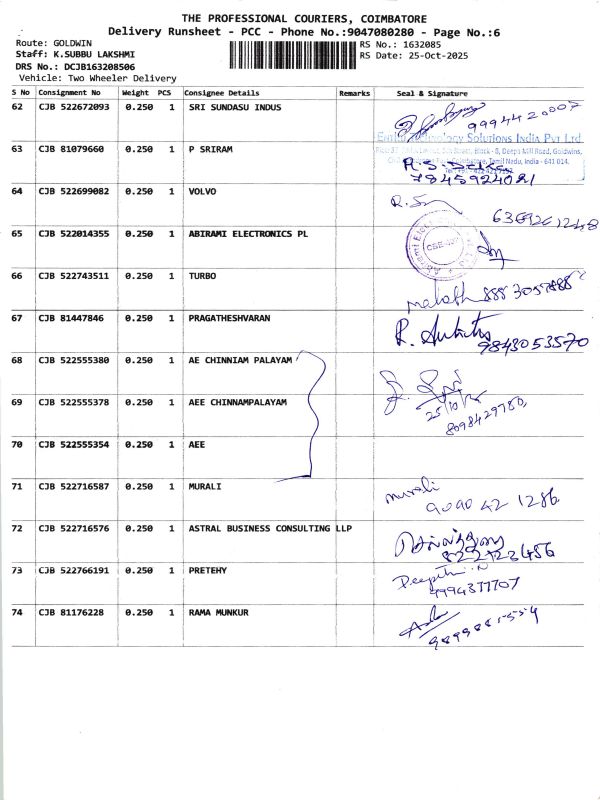 THE PROFESSIONAL COURIERS, COIMBATORE
Delivery Runsheet - PCC - Phone No.:9047080280 - Page No.:6
Route: GOLDWIN
RS No.: 1632085
Staff: K.SUBBU LAKSHMI
RS Date: 25-Oct-2025
DRS No.: DCJB163208506
Vehicle: Two Wheeler Delivery
S No Consignment No Weight PCS Consignee Details Remarks Seal & Signature
62 CJB 522672093 0.250 1 SRI SUNDASU INDUS
Technology Solutions India Pvt Ltd
63 CJB 81079660 0.250 1 P SRIRAM
7845924021
64 CJB 522699082 0.250 1 VOLVO
65 CJB 522014355 0.250 1 ABIRAMI ELECTRONICS PL
66 CJB 522743511 0.250 1 TURBO
67 CJB 81447846 0.250 1 PRAGATHESHVARAN
9843053570
68 CJB 522555380 0.250 1 AE CHINNIAM PALAYAM
69 CJB 522555378 0.250 1 AEE CHINNAMPALAYAM
25/10/25
8098429780
70 CJB 522555354 0.250 1 AEE
71 CJB 522716587 0.250 1 MURALI
murali
9090 42 1286
72 CJB 522716576 0.250 1 ASTRAL BUSINESS CONSULTING LLP
73 CJB 522766191 0.250 1 PRETEHY
Deepthi. N
9994377707
74 CJB 81176228 0.250 1 RAMA MUNKUR